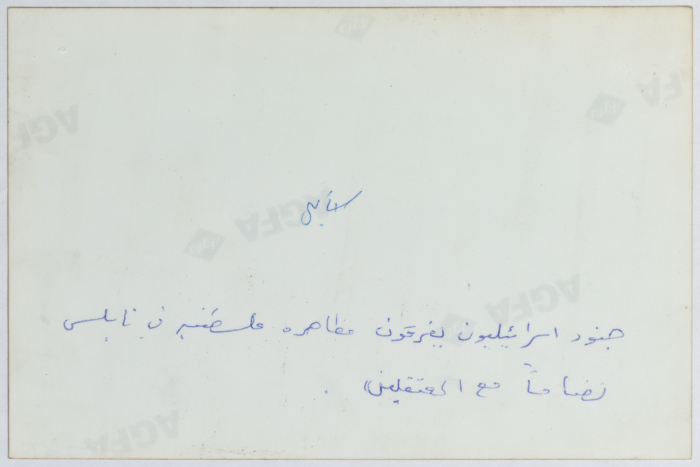 نابلس
جنود اسرائيليون يفرقون مظاهره فلسطينيه في نابلس
تضامناً مع المعتقلين .
AGFA
AGFA
AGFA
AGFA
AGFA
AGFA